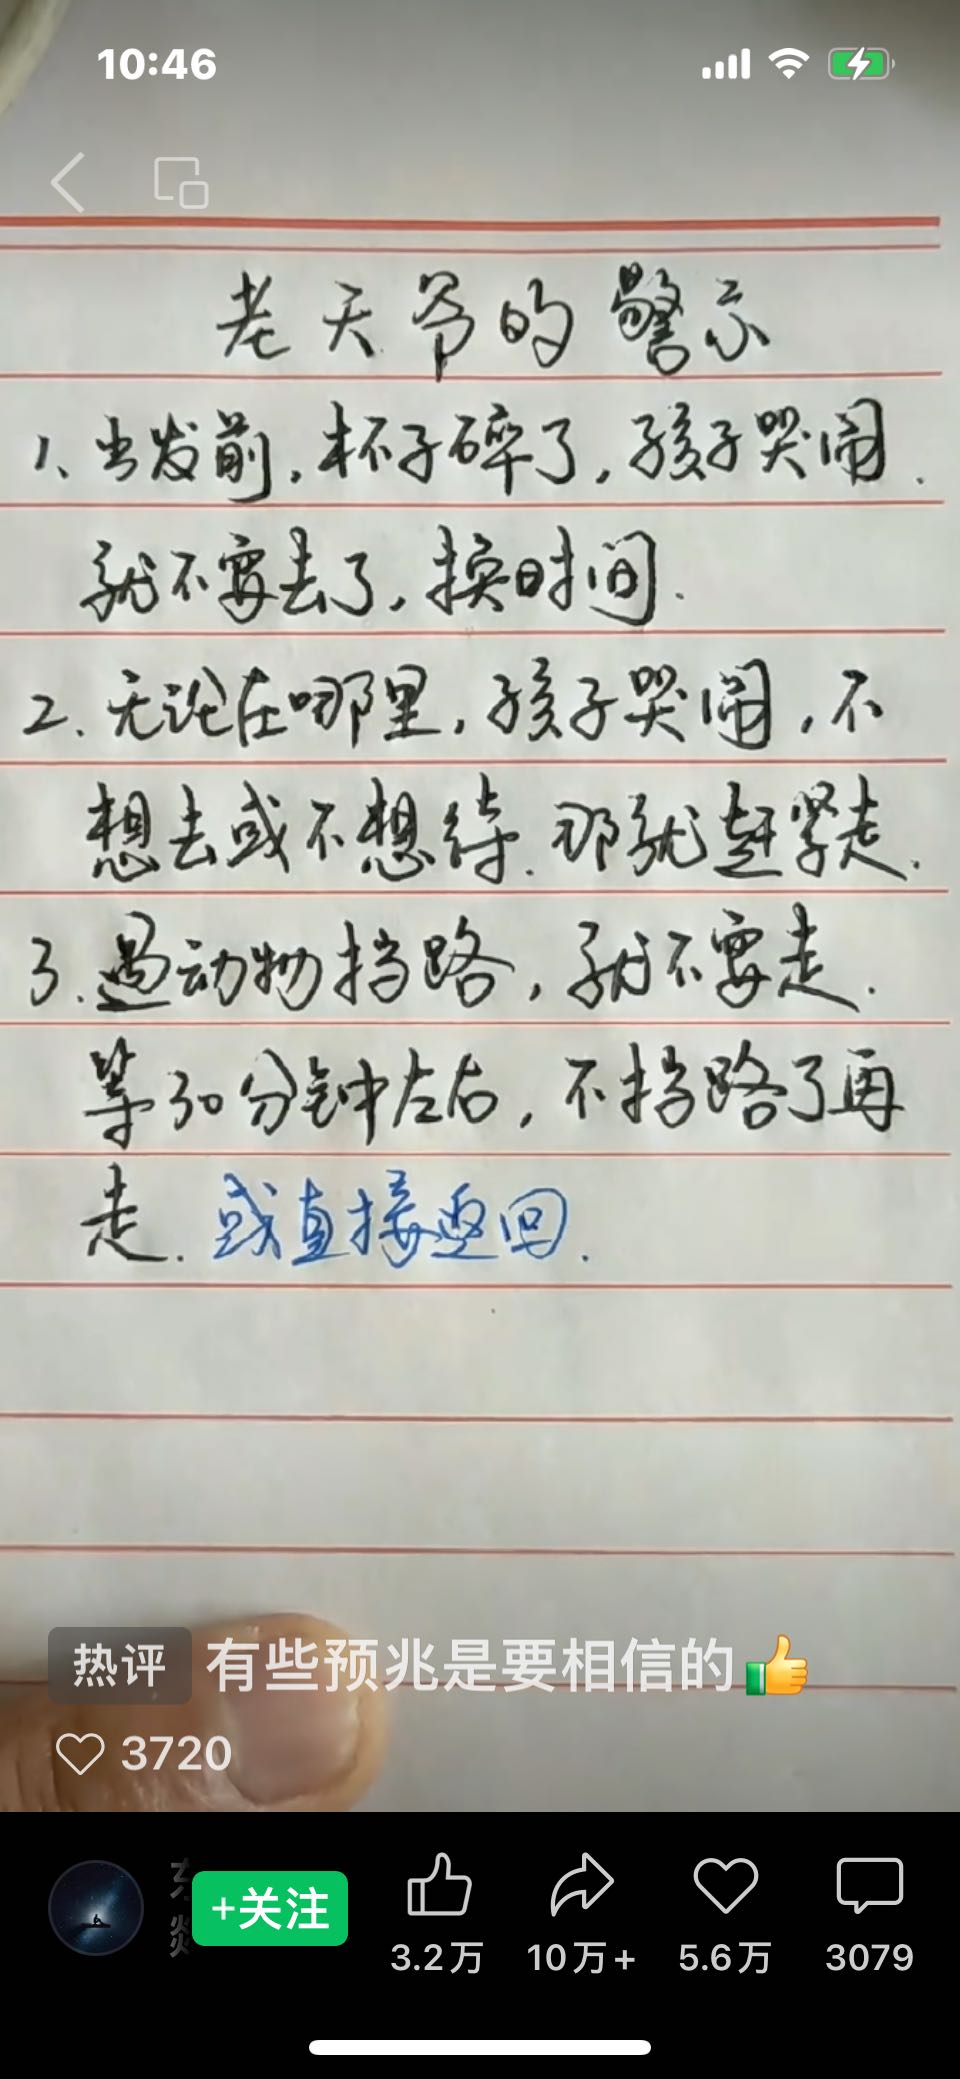 10:46
老天爷的警示
1、出发前,杯子碎了,孩子哭闹.
就不要去了,换时间.
2、无论在哪里,孩子哭闹,不
想去或不想待.那就赶紧走.
3.遇动物挡路,就不要走.
等30分钟左右,不挡路了再
走.或直接返回.
热评 有些预兆是要相信的👍
3720
+关注
3.2万 10万+ 5.6万 3079